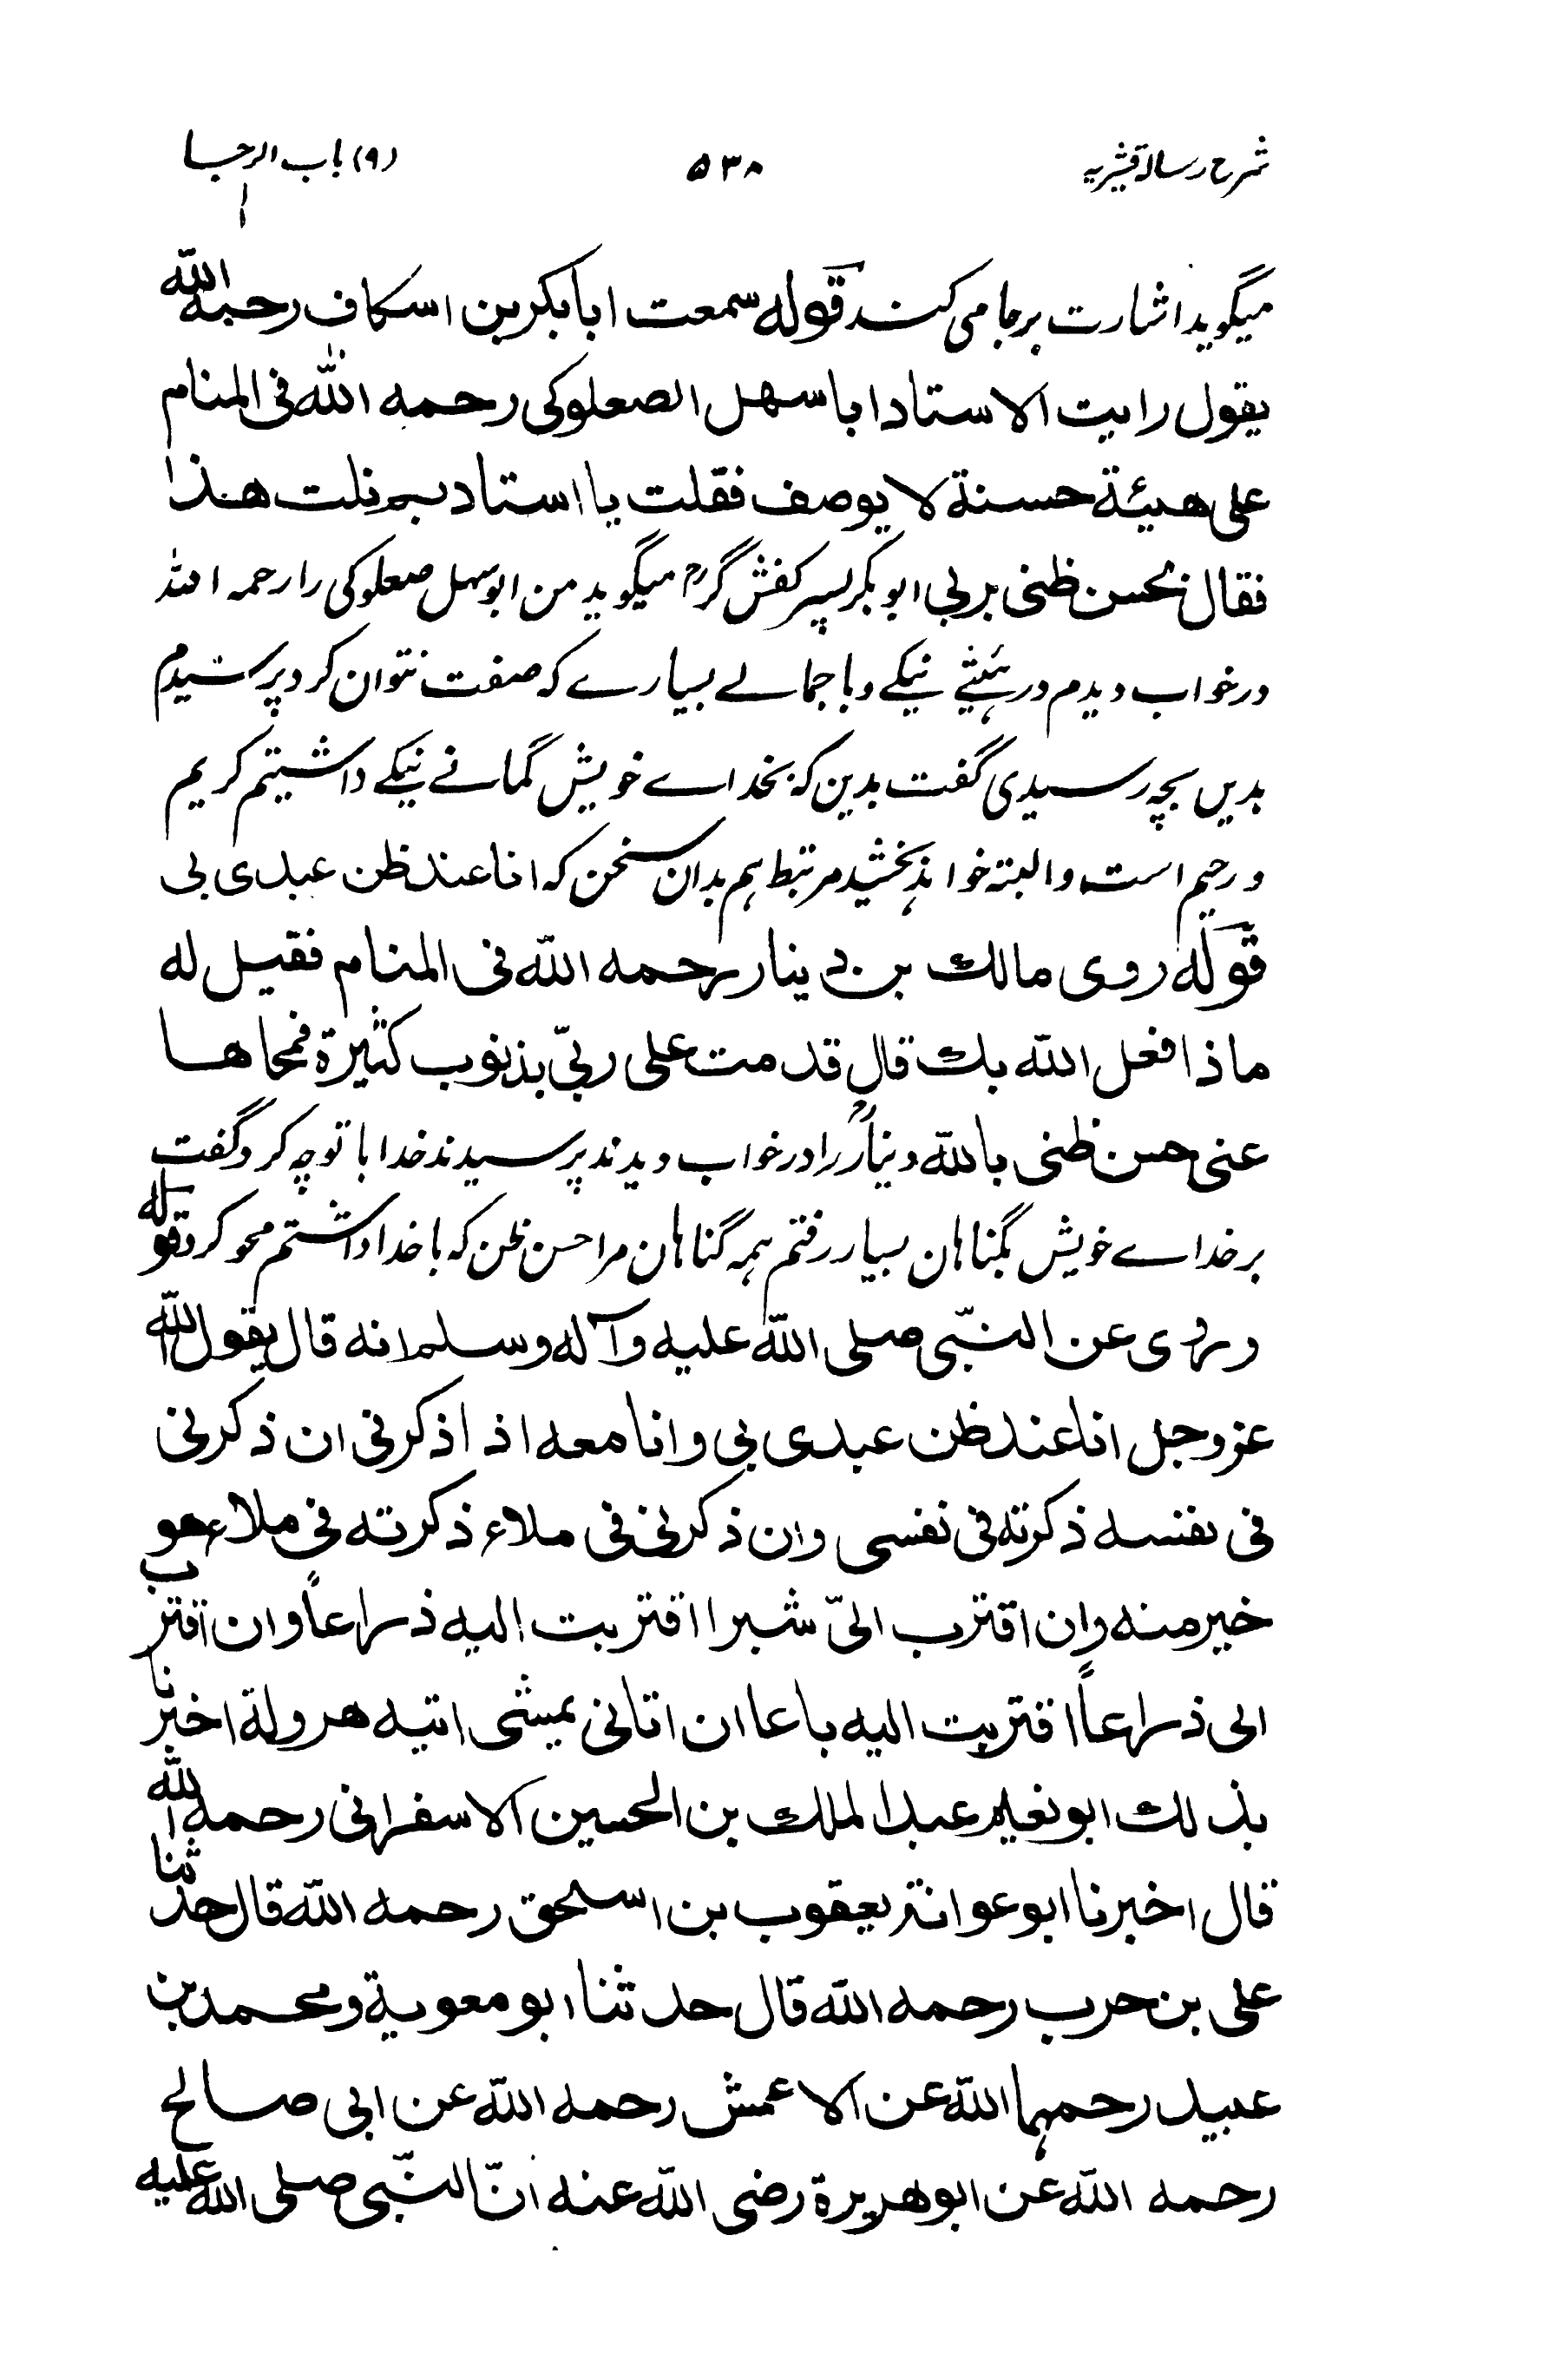 شرح رسالہ قشیریہ ۵۳۸ (۹) باب الرجا
میگوید اشارت برجا می کند قوله سمعت ابا بکر بن اسکاف رحمه الله
یقول رایت الاستاد ابا سهل الصعلوکی رحمه الله فی المنام
علی هیئة حسنة لا یوصف فقلت یا استاد بم نلت هذا
فقال بحسن ظنی بربی ابو بکر پسر کفش گر میگوید من ابو سہل صعلوکی را رحمہ اللہ
در خواب دیدم در ہیئتے نیکے و با جمالے بسیارے کہ صفت نتوان کرد پرسیدم
بدیں بچہ رسیدی گفت بدین کہ بخداے خویش گمانے نیکے داشتیم کریم
و رحیم است و البتہ خواہد بخشید مرتبط ہم بدان سخن کہ انا عند ظن عبدی بی
قوله روی مالك بن دینار رحمه الله فی المنام فقیل له
ماذا فعل الله بك قال قدمت علی ربّی بذنوب کثیرة فمحاها
عنی حسن ظنی بالله دینارؒ را در خواب دیدند پرسیدند خدا با تو چہ کرد گفت
بر خداے خویش بگناہان بسیار رفتم ہمہ گناہان مرا حسن ظن کہ با خدا داشتم محو کرد قوله
وروی عن النبّی صلی الله علیه وآله وسلم انه قال یقول الله
عز وجل انا عند ظن عبدی بی وانا معه اذا ذکرنی ان ذکرنی
فی نفسه ذکرته فی نفسی وان ذکرنی فی ملاء ذکرته فی ملاء هو
خیر منه وان اقترب الیّ شبرا اقتربت الیه ذراعاً وان اقترب
الی ذراعاً اقتربت الیه باعا ان اتانی یمشی اتیه هرولة اخبرنا
بذلك ابو نعیم عبد الملك بن الحسین الاسفرانی رحمه الله
قال اخبرنا ابو عوانة یعقوب بن اسحق رحمه الله قال حدثنا
علی بن حرب رحمه الله قال حدثنا ابو معویة ومحمد بن
عبید رحمہما الله عن الاعمش رحمه الله عن ابی صالح
رحمه الله عن ابو هریرة رضی الله عنه انّ النبّی صلی الله علیه